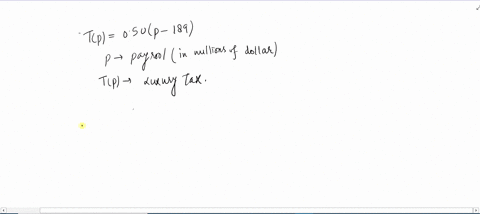 T(p) = 0.50(p - 189)
p → payrool (in millions of dollar)
T(p) → Luxury Tax.